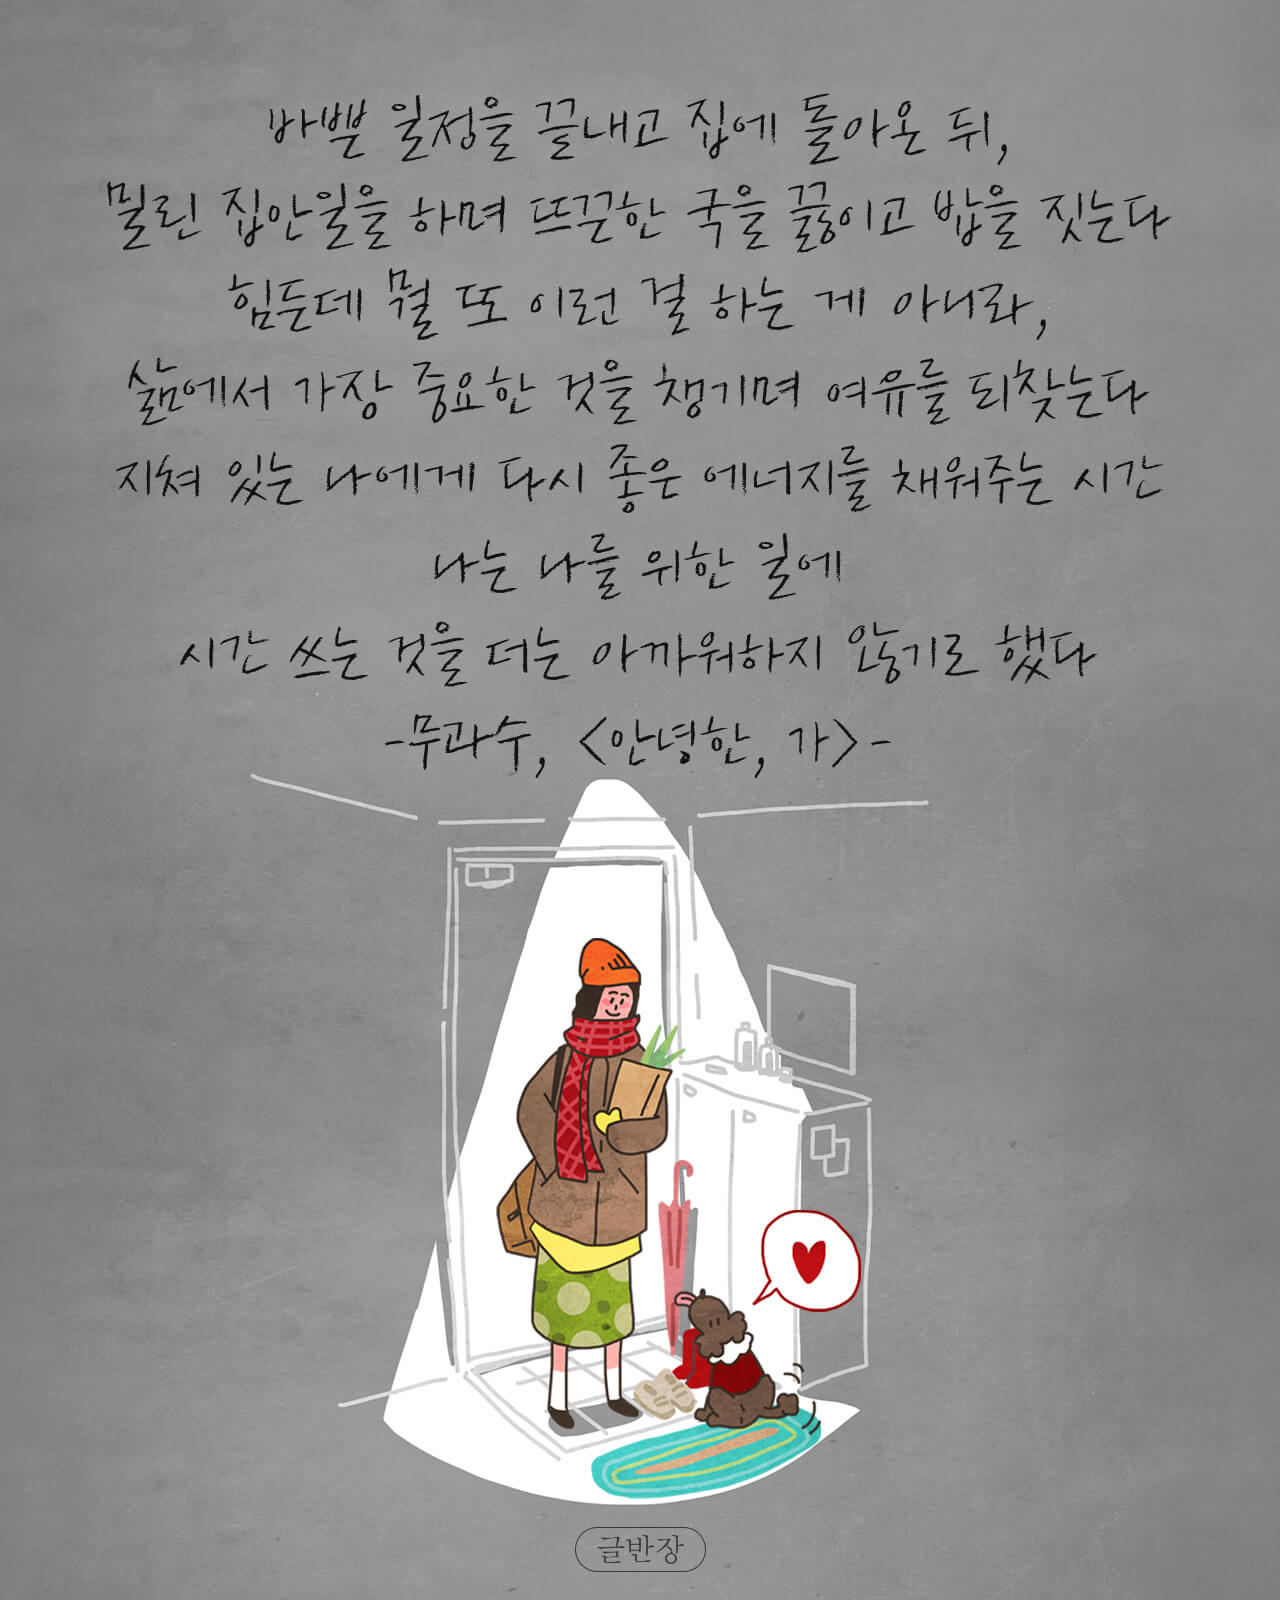 바쁜 일정을 끝내고 집에 돌아온 뒤,
밀린 집안일을 하며 뜨끈한 국을 끓이고 밥을 짓는다
힘든데 뭘 또 이런 걸 하는 게 아니라,
삶에서 가장 중요한 것을 챙기며 여유를 되찾는다
지쳐 있는 나에게 다시 좋은 에너지를 채워주는 시간
나는 나를 위한 일에
시간 쓰는 것을 더는 아까워하지 않기로 했다
-무과수, <안녕한, 가>-
글반장